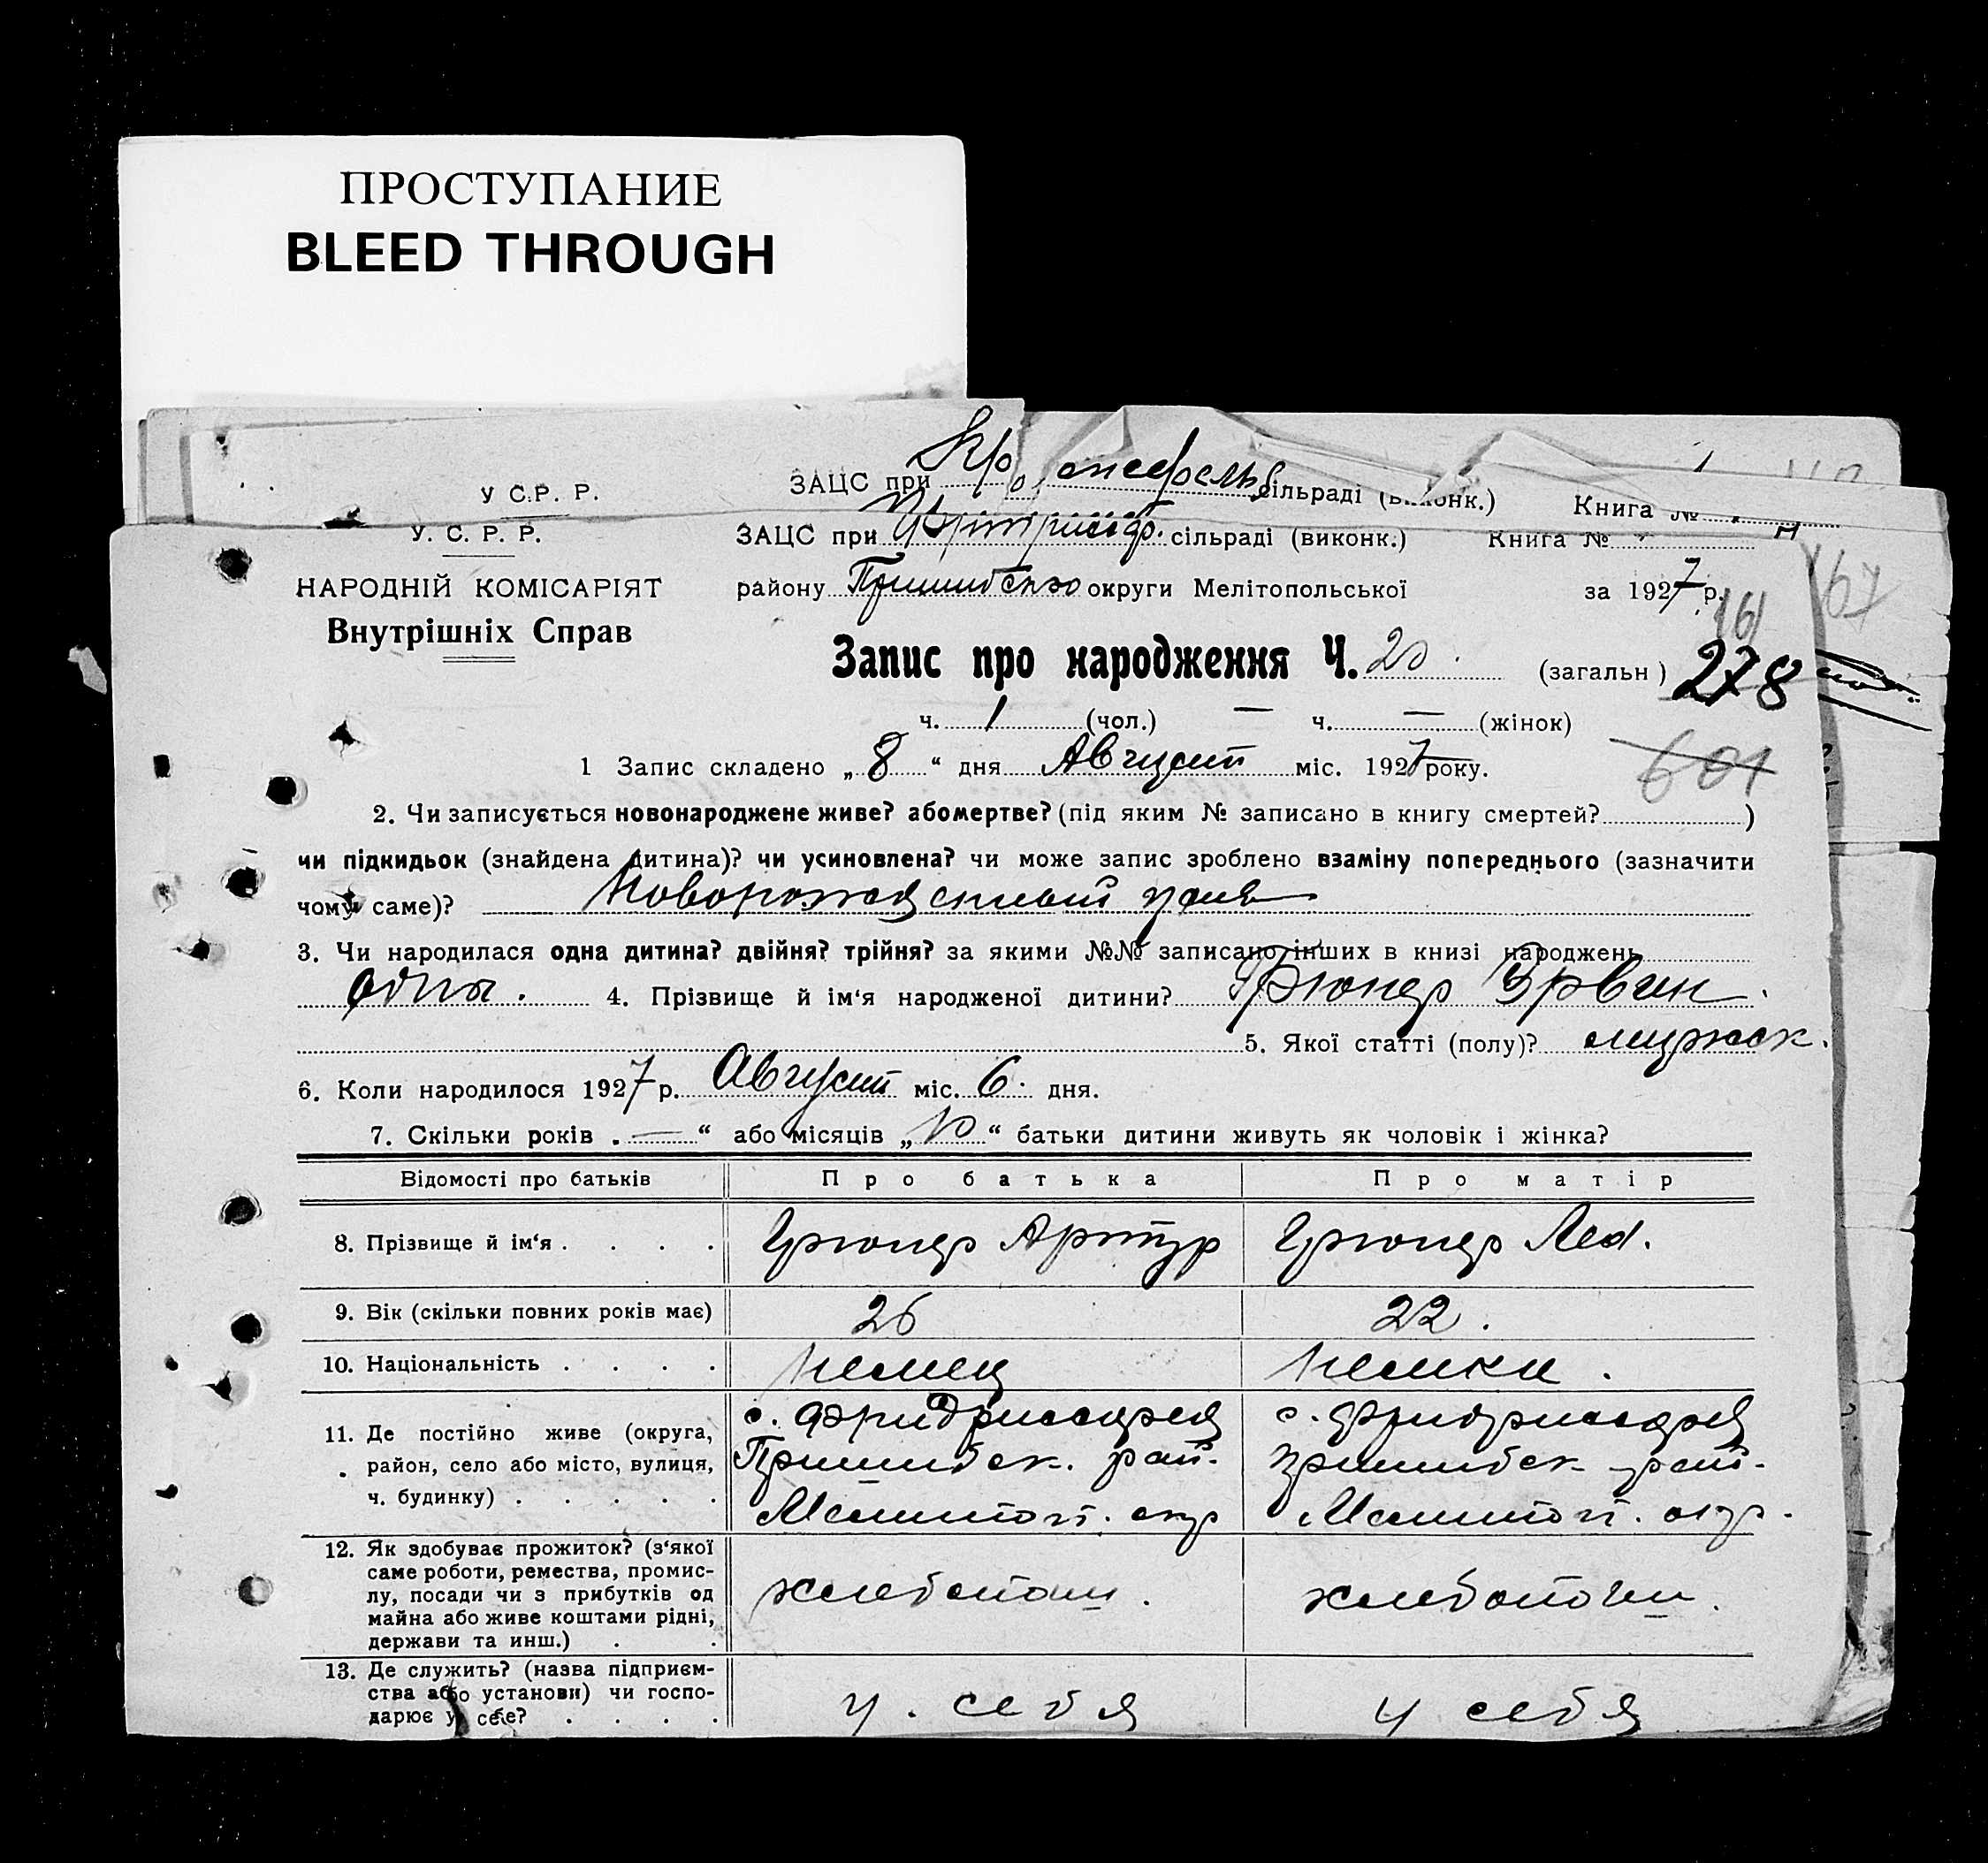 ПРОСТУПАНИЕ
BLEED THROUGH
У С.Р. Р.
ЗАЦС при сільраді (виконк.) Книга №
У. С. Р. Р.
ЗАЦС при сільраді (виконк.) Книга №
НАРОДНІЙ КОМІСАРІЯТ
району округи Мелітопольської за 1927 р.
Внутрішніх Справ
161
67
Запис про народження Ч. 20. (загальн) 278
ч. 1 (чол.) — ч. — (жінок)
601
1 Запис складено „8“ дня Август міс. 1927 року.
2. Чи записується новонароджене живе? абомертве? (під яким № записано в книгу смертей? )
чи підкидьок (знайдена дитина)? чи усиновлена? чи може запис зроблено взаміну попереднього (зазначити
чому саме)?
3. Чи народилася одна дитина? двійня? трійня? за якими №№ записано інших в книзі народжень
4. Прізвище й ім‘я народженої дитини? Грюнер Эрвин
5. Якої статті (полу)? мужск.
6. Коли народилося 1927 р. Август міс. 6. дня.
7. Скільки років „—“ або місяців „10“ батьки дитини живуть як чоловік і жінка?
Відомості про батьків Про батька Про матір
8. Прізвище й ім‘я . . . . Грюнер Артур Грюнер
9. Вік (скільки повних років має) 26 22.
10. Національність . . . . Немец Немка.
11. Де постійно живе (округа,
район, село або місто, вулиця,
ч. будинку) . . . . .
с. с.
Пришибск. рай. Пришибск рай.
Мелитоп. окр Мелитоп. окр.
12. Як здобуває прожиток? (з‘якої
саме роботи, ремества, промис-
лу, посади чи з прибутків од
майна або живе коштами рідні,
держави та инш.) . .
хлебопаш. хлебопаш.
13. Де служить? (назва підприєм-
ства або установи) чи госпо-
дарює у себе? . . . .
у. себя у себя